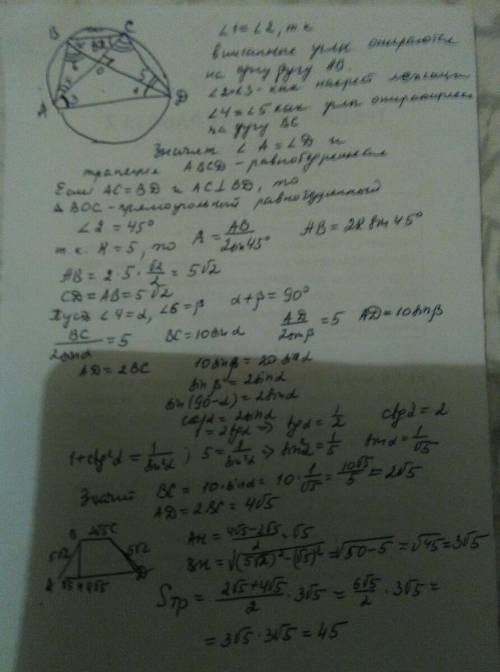 B C
A D
O
∠1=∠2, т.к.
вписанные углы опираются
на одну дугу AB.
∠2=∠3 - как накрест лежащи
∠4=∠5 как углы опирающиеся
на дугу BC
Значит ∠A=∠D и
трапеция ABCD - равнобедренная
Если AC=BD и AC⊥BD, то
Δ BOC - прямоугольный равнобедренный
∠2 = 45°
т.к. R=5, то R = AB/(2sin45°) AB = 2R sin 45°
AB = 2·5·√2/2 = 5√2
CD=AB=5√2
Пусть ∠4=α, ∠6=β α+β=90°
BC/(2sinα) = 5 BC=10sinα AD/(2sinβ) = 5 AD=10sinβ
AD=2BC 10sinβ = 20sinα
sinβ = 2sinα
sin(90-α) = 2sinα
cosα = 2sinα
1 = 2tgα => tgα = 1/2 ctgα = 2
1+ctg²α = 1/sin²α ; 5 = 1/sin²α => sin²α = 1/5 sinα = 1/√5
Значит BC = 10·sinα = 10·1/√5 = 10√5/5 = 2√5
AD = 2BC = 4√5
B 2√5 C
5√2 5√2
A √5 H 4√5 D
AH = (4√5-2√5)/2 = √5
BH = √((5√2)²-(√5)²) = √(50-5) = √45 = 3√5
Sтр = (2√5+4√5)/2 · 3√5 = 6√5/2 · 3√5 =
= 3√5·3√5 = 45